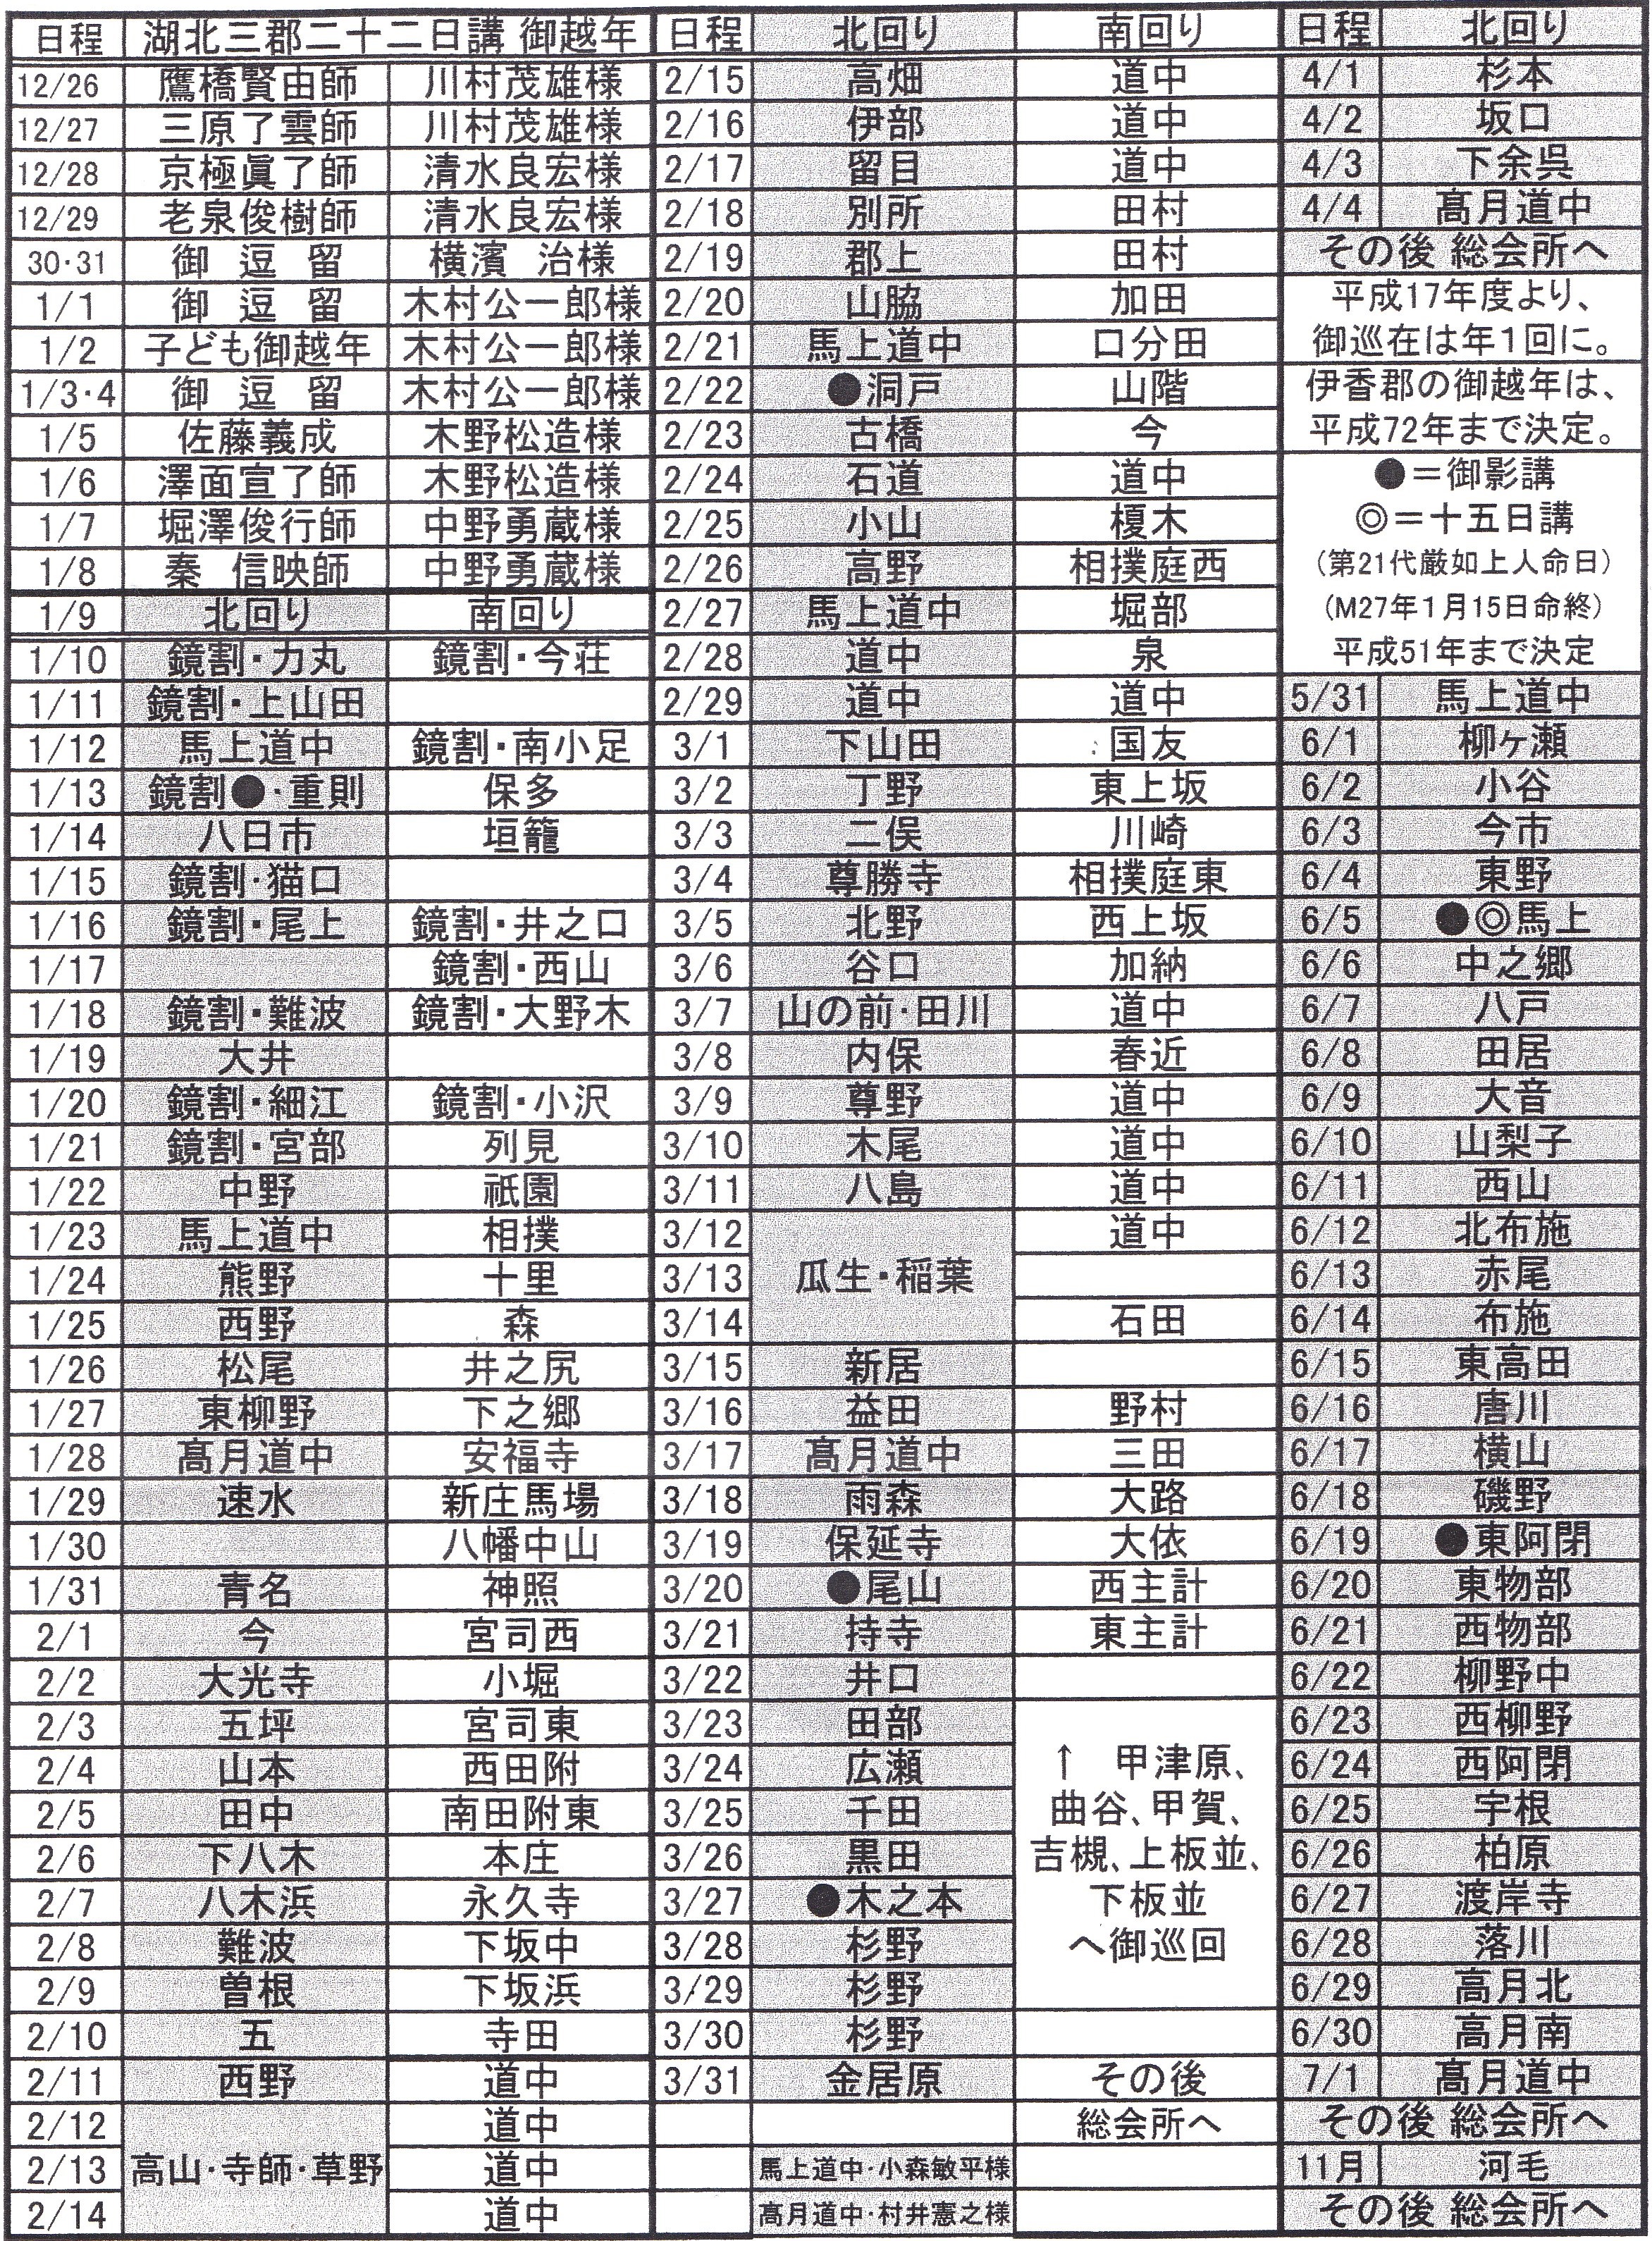 日程 湖北三郡二十二日講 御越年
12/26 鷹橋賢由師 川村茂雄様
12/27 三原了雲師 川村茂雄様
12/28 京極眞了師 清水良宏様
12/29 老泉俊樹師 清水良宏様
30・31 御 逗 留 横濱 治様
1/1 御 逗 留 木村公一郎様
1/2 子ども御越年 木村公一郎様
1/3・4 御 逗 留 木村公一郎様
1/5 佐藤義成 木野松造様
1/6 澤面宣了師 木野松造様
1/7 堀澤俊行師 中野勇蔵様
1/8 秦 信映師 中野勇蔵様
1/9 北回り 南回り
1/10 鏡割・力丸 鏡割・今荘
1/11 鏡割・上山田
1/12 馬上道中 鏡割・南小足
1/13 鏡割●・重則 保多
1/14 八日市 垣籠
1/15 鏡割・猫口
1/16 鏡割・尾上 鏡割・井之口
1/17 鏡割・西山
1/18 鏡割・難波 鏡割・大野木
1/19 大井
1/20 鏡割・細江 鏡割・小沢
1/21 鏡割・宮部 列見
1/22 中野 祇園
1/23 馬上道中 相撲
1/24 熊野 十里
1/25 西野 森
1/26 松尾 井之尻
1/27 東柳野 下之郷
1/28 髙月道中 安福寺
1/29 速水 新庄馬場
1/30 八幡中山
1/31 青名 神照
2/1 今 宮司西
2/2 大光寺 小堀
2/3 五坪 宮司東
2/4 山本 西田附
2/5 田中 南田附東
2/6 下八木 本庄
2/7 八木浜 永久寺
2/8 難波 下坂中
2/9 曽根 下坂浜
2/10 五 寺田
2/11 西野 道中
2/12 道中
2/13 高山・寺師・草野 道中
2/14 道中
日程 北回り 南回り
2/15 高畑 道中
2/16 伊部 道中
2/17 留目 道中
2/18 別所 田村
2/19 郡上 田村
2/20 山脇 加田
2/21 馬上道中 口分田
2/22 ●洞戸 山階
2/23 古橋 今
2/24 石道 道中
2/25 小山 榎木
2/26 高野 相撲庭西
2/27 馬上道中 堀部
2/28 道中 泉
2/29 道中 道中
3/1 下山田 国友
3/2 丁野 東上坂
3/3 二俣 川崎
3/4 尊勝寺 相撲庭東
3/5 北野 西上坂
3/6 谷口 加納
3/7 山の前・田川 道中
3/8 内保 春近
3/9 尊野 道中
3/10 木尾 道中
3/11 八島 道中
3/12 道中
3/13 瓜生・稲葉
3/14 石田
3/15 新居
3/16 益田 野村
3/17 髙月道中 三田
3/18 雨森 大路
3/19 保延寺 大依
3/20 ●尾山 西主計
3/21 持寺 東主計
3/22 井口
3/23 田部
3/24 広瀬 ↑ 甲津原、
3/25 千田 曲谷、甲賀、
3/26 黒田 吉槻、上板並、
3/27 ●木之本 下板並
3/28 杉野 へ御巡回
3/29 杉野
3/30 杉野
3/31 金居原 その後
総会所へ
馬上道中・小森敏平様
高月道中・村井憲之様
日程 北回り
4/1 杉本
4/2 坂口
4/3 下余呉
4/4 髙月道中
その後 総会所へ
平成17年度より、
御巡在は年1回に。
伊香郡の御越年は、
平成72年まで決定。
●＝御影講
◎＝十五日講
(第21代厳如上人命日)
(M27年1月15日命終)
平成51年まで決定
5/31 馬上道中
6/1 柳ヶ瀬
6/2 小谷
6/3 今市
6/4 東野
6/5 ●◎馬上
6/6 中之郷
6/7 八戸
6/8 田居
6/9 大音
6/10 山梨子
6/11 西山
6/12 北布施
6/13 赤尾
6/14 布施
6/15 東高田
6/16 唐川
6/17 横山
6/18 磯野
6/19 ●東阿閉
6/20 東物部
6/21 西物部
6/22 柳野中
6/23 西柳野
6/24 西阿閉
6/25 宇根
6/26 柏原
6/27 渡岸寺
6/28 落川
6/29 高月北
6/30 高月南
7/1 髙月道中
その後 総会所へ
11月 河毛
その後 総会所へ